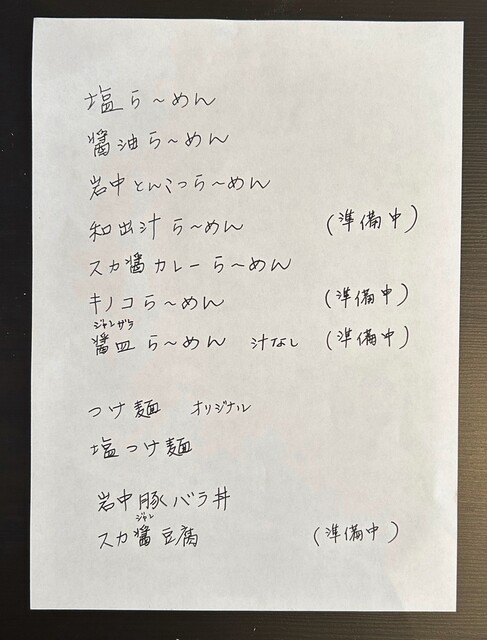 塩ら〜めん
醤油ら〜めん
岩中とんこつら〜めん
和出汁ら〜めん (準備中)
スカ醤カレーら〜めん
キノコら〜めん (準備中)
ジャンガラ
醤皿ら〜めん 汁なし (準備中)
つけ麺 オリジナル
塩つけ麺
岩中豚バラ丼
ジャン
スカ醤豆腐 (準備中)